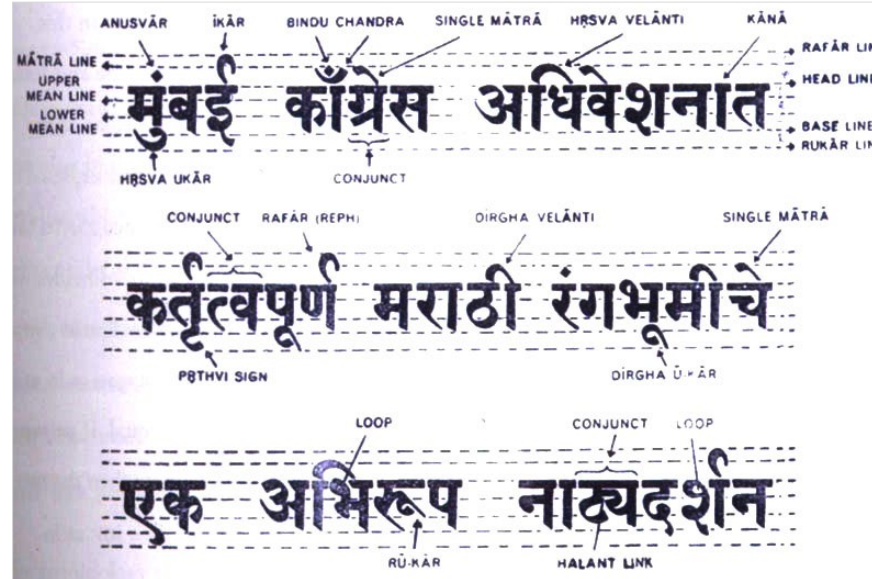 ANUSVĀR ĪKĀR BINDU CHANDRA SINGLE MĀTRĀ HṚSVA VELĀNTI KĀNĀ
MĀTRĀ LINE RAFĀR LIN
UPPER MEAN LINE HEAD LINE
मुंबई काँग्रेस अधिवेशनात
LOWER MEAN LINE BASE LINE
RUKĀR LIN
HṚSVA UKĀR CONJUNCT
CONJUNCT RAFĀR (REPH) DĪRGHA VELĀNTI SINGLE MĀTRĀ
कर्तृत्वपूर्ण मराठी रंगभूमीचे
PṚTHVI SIGN DĪRGHA Ū-KĀR
LOOP CONJUNCT LOOP
एक अभिरूप नाट्यदर्शन
RŪ-KĀR HALANT LINK